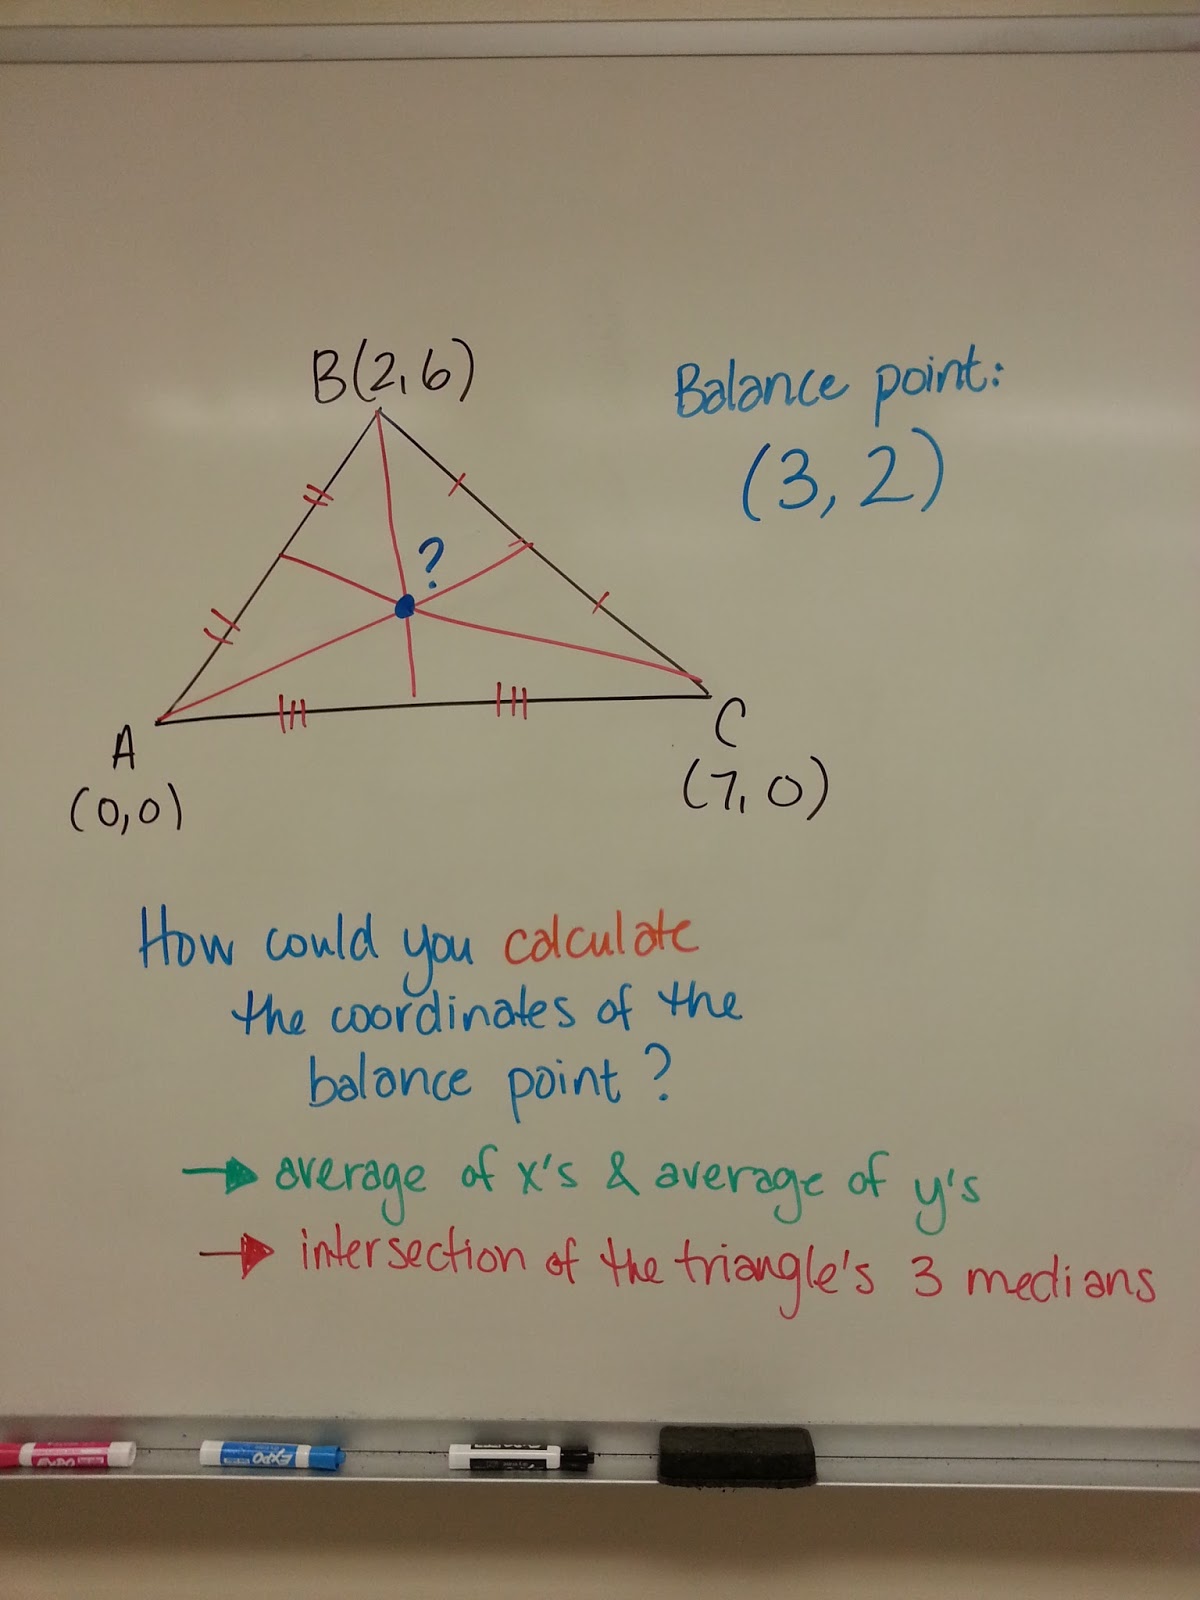 B(2,6)
Balance point:
(3, 2)
?
A
(0,0)
C
(7,0)
How could you calculate
the coordinates of the
balance point?
→ average of x's & average of y's
→ intersection of the triangle's 3 medians
EXPO
EXPO